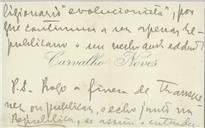 ligionario "evolucionista", por
que continua a ser apenas re-
publicano e seu
Carvalho Neves
P.S. Rogo a fineza de
ou publicar, o echo junto na
Republica, se assim o entender